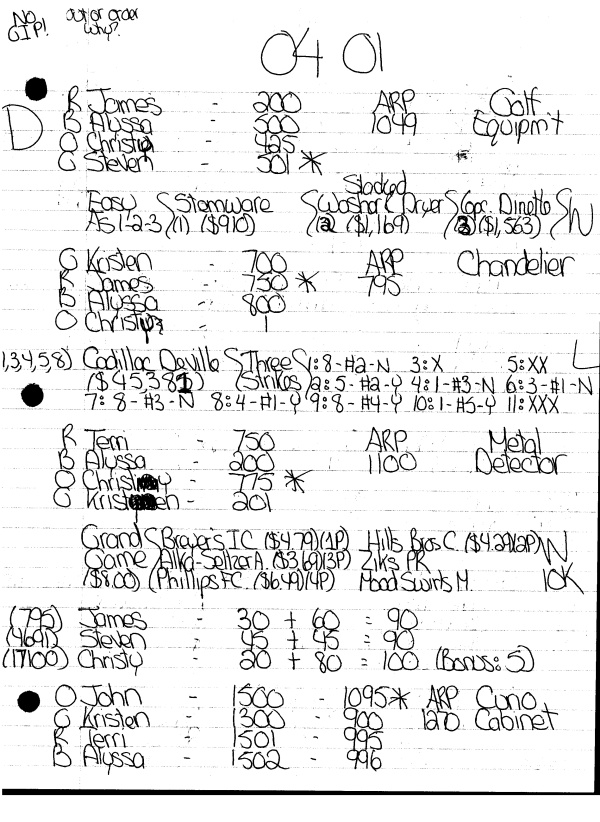 NO GIP! out of order why?
04 01
R James - 200 ARP Golf
D B Alyssa - 500 1049 Equipm't
O Christy - 425
G Steven - 501 *
Easy Stemware Stacked Washer & Dryer 6pc. Dinette W
AS 1-2-3 (1) ($910) (2 ($1,169) (3) ($1,563)
G Kristen - 700 ARP Chandelier
R James - 750 * 795
B Alyssa - 800
O Christy - 1
1,3,4,5,8) Cadillac Deville Three 1: 8-#2-N 3: X 5: XX L
($45,381) Strikes 2: 5-#2-Y 4: 1-#3-N 6: 3-#1-N
7: 8-#3-N 8: 4-#1-Y 9: 8-#4-Y 10: 1-#5-Y 11: XXX
R Terri - 750 ARP Metal
B Alyssa - 200 1100 Detector
O Christy - 775 *
G Kristen - 201
Grand Breyer's IC ($4.79)(1P) Hills Bros C. ($4.29)(2P) W
Game Alka-Seltzer A. ($3.69)(3P) Ziks PR
($8.00) (Phillips FC. ($6.49)(4P) Mood Swints M. 10K
(795) James - 30 + 60 = 90
(4691) Steven - 45 + 45 = 90
(17100) Christy - 20 + 80 = 100 (Bonus: 5)
O John - 1500 - 1095 * ARP Curio
G Kristen - 1300 - 900 1270 Cabinet
R Terri - 1501 - 995
B Alyssa - 1502 - 996